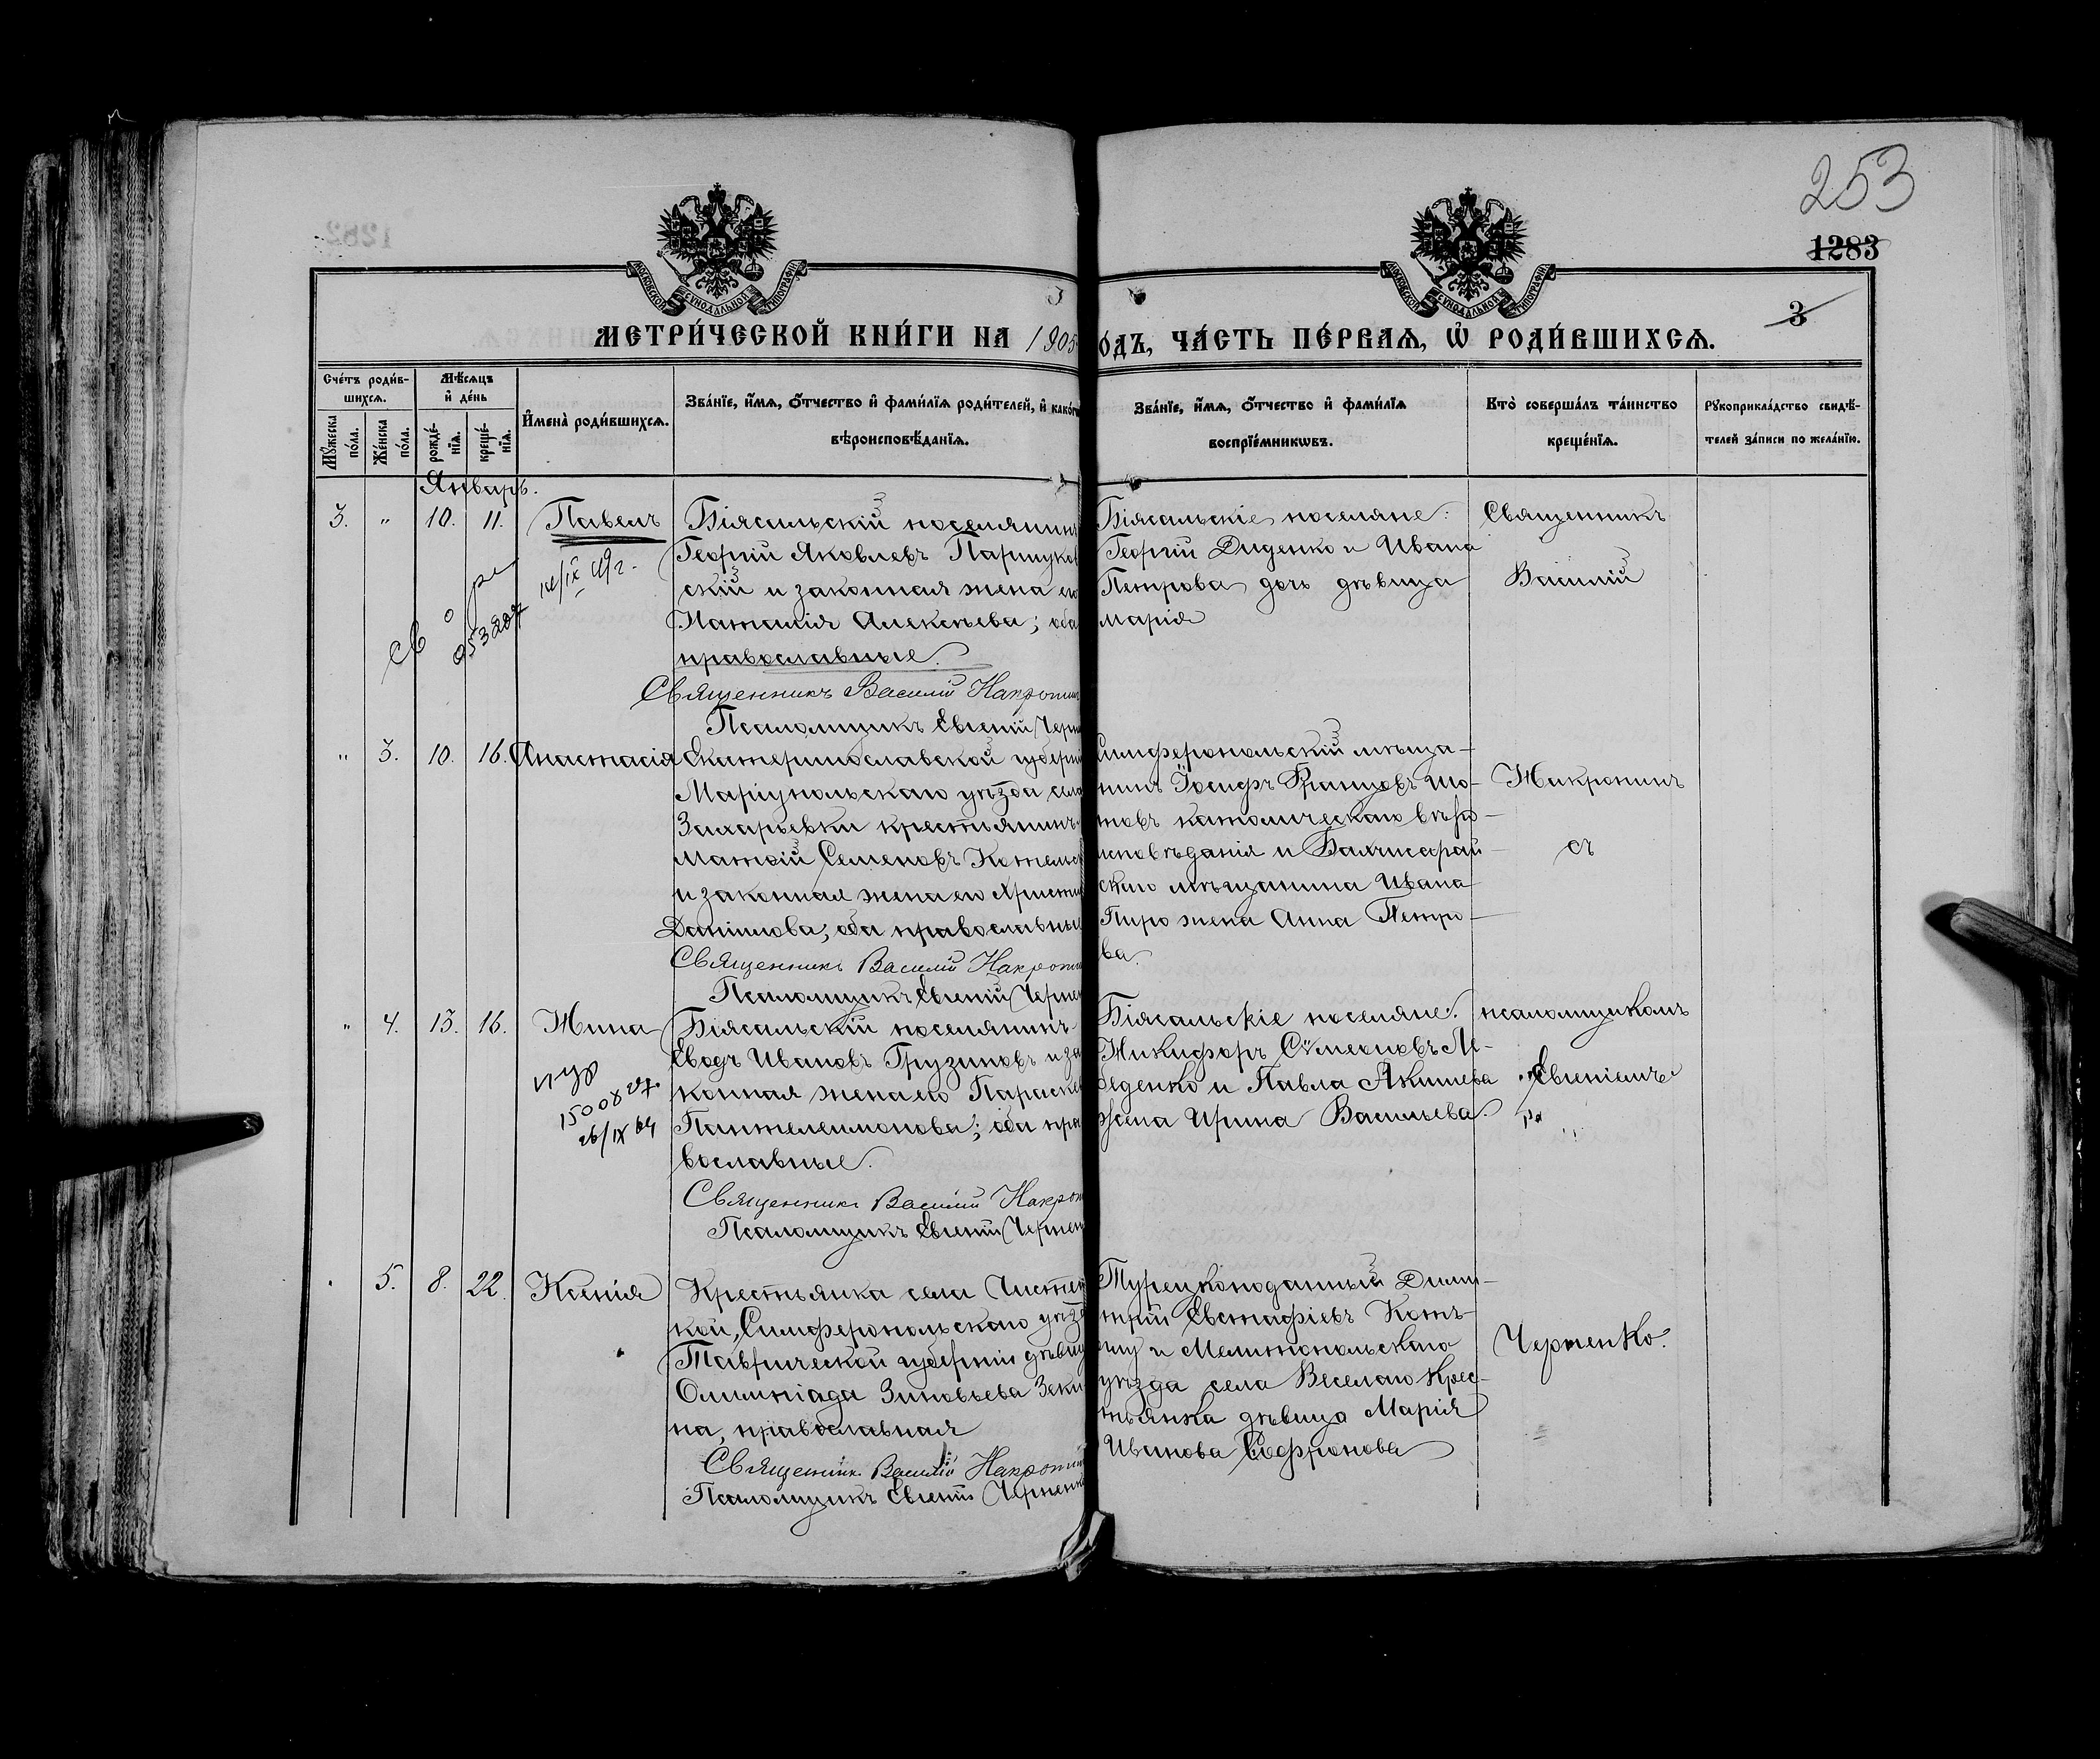 253
1283
3
МОСКОВСКОЙ СѴНОДАЛЬНОЙ ТИПОГРАФІИ
МОСКОВСКОЙ СѴНОДАЛЬНОЙ ТИПОГРАФІИ
МЕТРИ́ЧЕСКОЙ КНИ́ГИ НА 1905
ОДЪ, ЧА́СТЬ ПЕ́РВАѦ, Ѡ҆ РОДИ́ВШИХСѦ.
Сче́тъ роди́в-
шихсѧ.
Мꙋ́жеска
по́ла.
Же́нска
по́ла.
Мѣ́сѧцъ
и҆ де́нь
рожде́-
нїѧ.
креще́-
нїѧ.
И҆мена̀ роди́вшихсѧ.
Зва́нїе, и҆́мѧ, ѻ҆́тчество и҆ фами́лїѧ роди́телей, и҆ како́г
вѣроисповѣ́данїѧ.
Зва́нїе, и҆́мѧ, ѻ҆́тчество и҆ фами́лїѧ
воспрїе́мникѡвъ.
Кто̀ соверша́лъ та́инство
креще́нїѧ.
Рꙋкоприкла́дство свидѣ́-
телей за́писи по жела́нїю.
Январь.
3. " 10. 11. Павелъ
Біясальскій поселянинъ
Георгій Яковлевъ Паршуков
скій и законная жена его
Наталія Алексѣева; оба
православные.
Священникъ Василій Накропин
Псаломщикъ Евгеній Черне
Біясальскіе поселяне:
Георгій Диденко и Ивана
Петрова дочь дѣвица
Марія
Священникъ
Василій
" 3. 10. 16. Анастасія
Екатеринославской губерні
Маріупольскаго уѣзда села
Захарьевки крестьянинъ
Матѳій Семеновъ Котельс
и законная жена его Христи
Даніилова; оба православные
Священникъ Василій Накропи
Псаломщикъ Евгеній Черне
Симферопольскій мѣща-
нинъ Іосифъ Францовъ Шо-
товъ католическаго вѣро-
исповѣданія и Бахчисарай-
скаго мѣщанина Ивана
Пиро жена Анна Петро-
ва.
Накропинъ
съ
" 4. 13. 16. Нина
Біясальскій поселянинъ
Еводъ Ивановъ Грузиновъ и за
конная жена его Параске
Пантелеимонова; оба пра
вославные.
Священникъ Василій Накроп
Псаломщикъ Евгеній Чернен
26/IX 64
Біясальскіе поселяне.
Никифоръ Сѵмеоновъ Ле-
беденко и Павла Акишева
жена Ирина Васильева.
псаломщикомъ
Евгеніемъ
5. 8. 22. Ксенія
Крестьянка села Чистень
кой, Симферопольскаго уѣзд
Таврической губерніи дѣвиц
Олимпіада Зиновьева Зеки
на, православная
Священникъ Василій Накропин
Псаломщикъ Евгеній Черненк
Турецкоподанный Дими-
трій Евстафіевъ Коть-
и Мелитопольскаго
уѣзда села Веселаго крес-
тьянка дѣвица Марія
Иванова Софронова
Черненко.